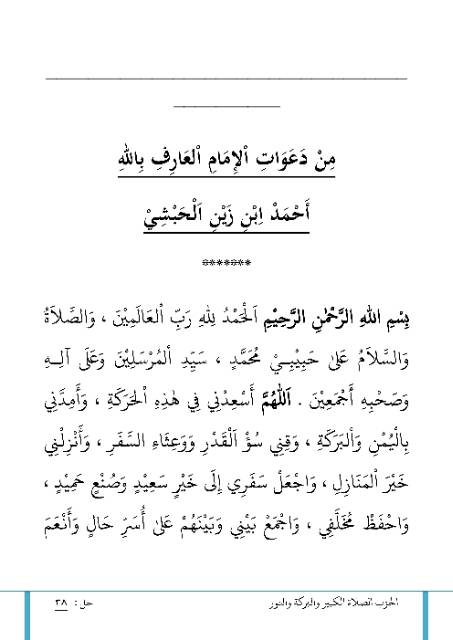 مِنْ دَعَوَاتِ الْإِمَامِ الْعَارِفِ بِاللهِ
أَحْمَدْ اِبْنِ زَيْنِ اَلْحَبْشِيْ
*******
بِسْمِ اللهِ الرَّحْمٰنِ الرَّحِيْمِ اَلْحَمْدُ لِلهِ رَبِّ الْعَالَمِيْنَ ، وَالصَّلَاةُ
وَالسَّلَامُ عَلىٰ حَبِيْبِيْ مُحَمَّدٍ ، سَيِّدِ الْمُرْسَلِيْنَ وَعَلَى آلِهِ
وَصَحْبِهِ أَجْمَعِيْنَ . اَللّٰهُمَّ أَسْعِدْنِي فِي هٰذِهِ الْحَرَكَةِ ، وَأَمِدَّنِي
بِالْيُمْنِ وَالْبَرَكَةِ ، وَقِنِي سُؤْ الْقَدْرِ وَوَعِثَاءِ السَّفَرِ ، وَأَنْزِلْنِي
خَيْرَ الْمَنَازِلِ ، وَاجْعَلْ سَفَرِي إِلَى خَيْرٍ سَعِيْدٍ وَصُنْعٍ حَمِيْدٍ ،
وَاحْفَظْ مُخَلَّفِي ، وَاجْمَعْ بَيْنِي وَبَيْنَهُمْ عَلىٰ أَسَرِّ حَالٍ وَأَنْعَمَ
الحزب الصلاة الكبير والبركة والنور
حل : ٣٨